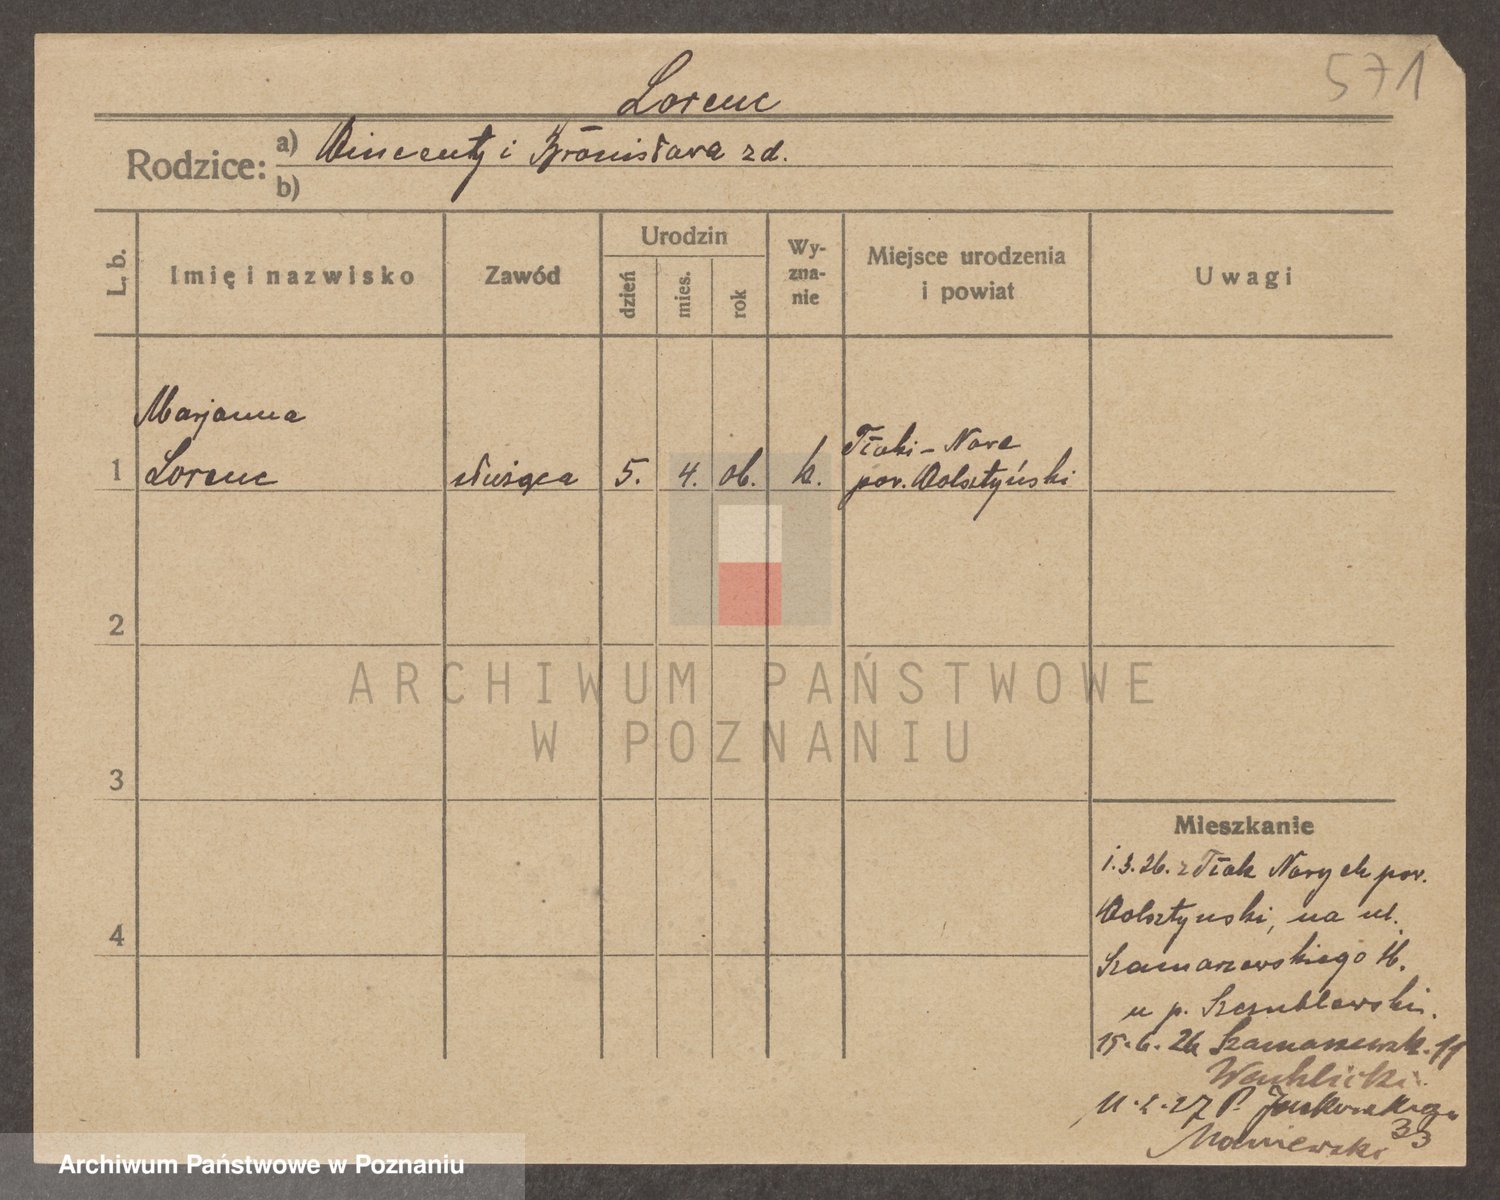 571
Lorenc
Rodzice: a) Wincenty i Bronisława zd.
b)
L. b.
Imię i nazwisko
Zawód
Urodzin
dzień
mies.
rok
Wy-
zna-
nie
Miejsce urodzenia
i powiat
Uwagi
Marjanna
1 Lorenc służąca 5. 4. 06. k. Tłoki-Nowe
pow. Wolsztyński
2
3
4
ARCHIWUM PAŃSTWOWE
W POZNANIU
Mieszkanie
1.3.26. z Tłok Nowych pow.
Wolsztyński, na ul.
Szamarzewskiego 16.
u p.
15.6.26 Szamarzewsk.
11.2.27 P.
33
Archiwum Państwowe w Poznaniu